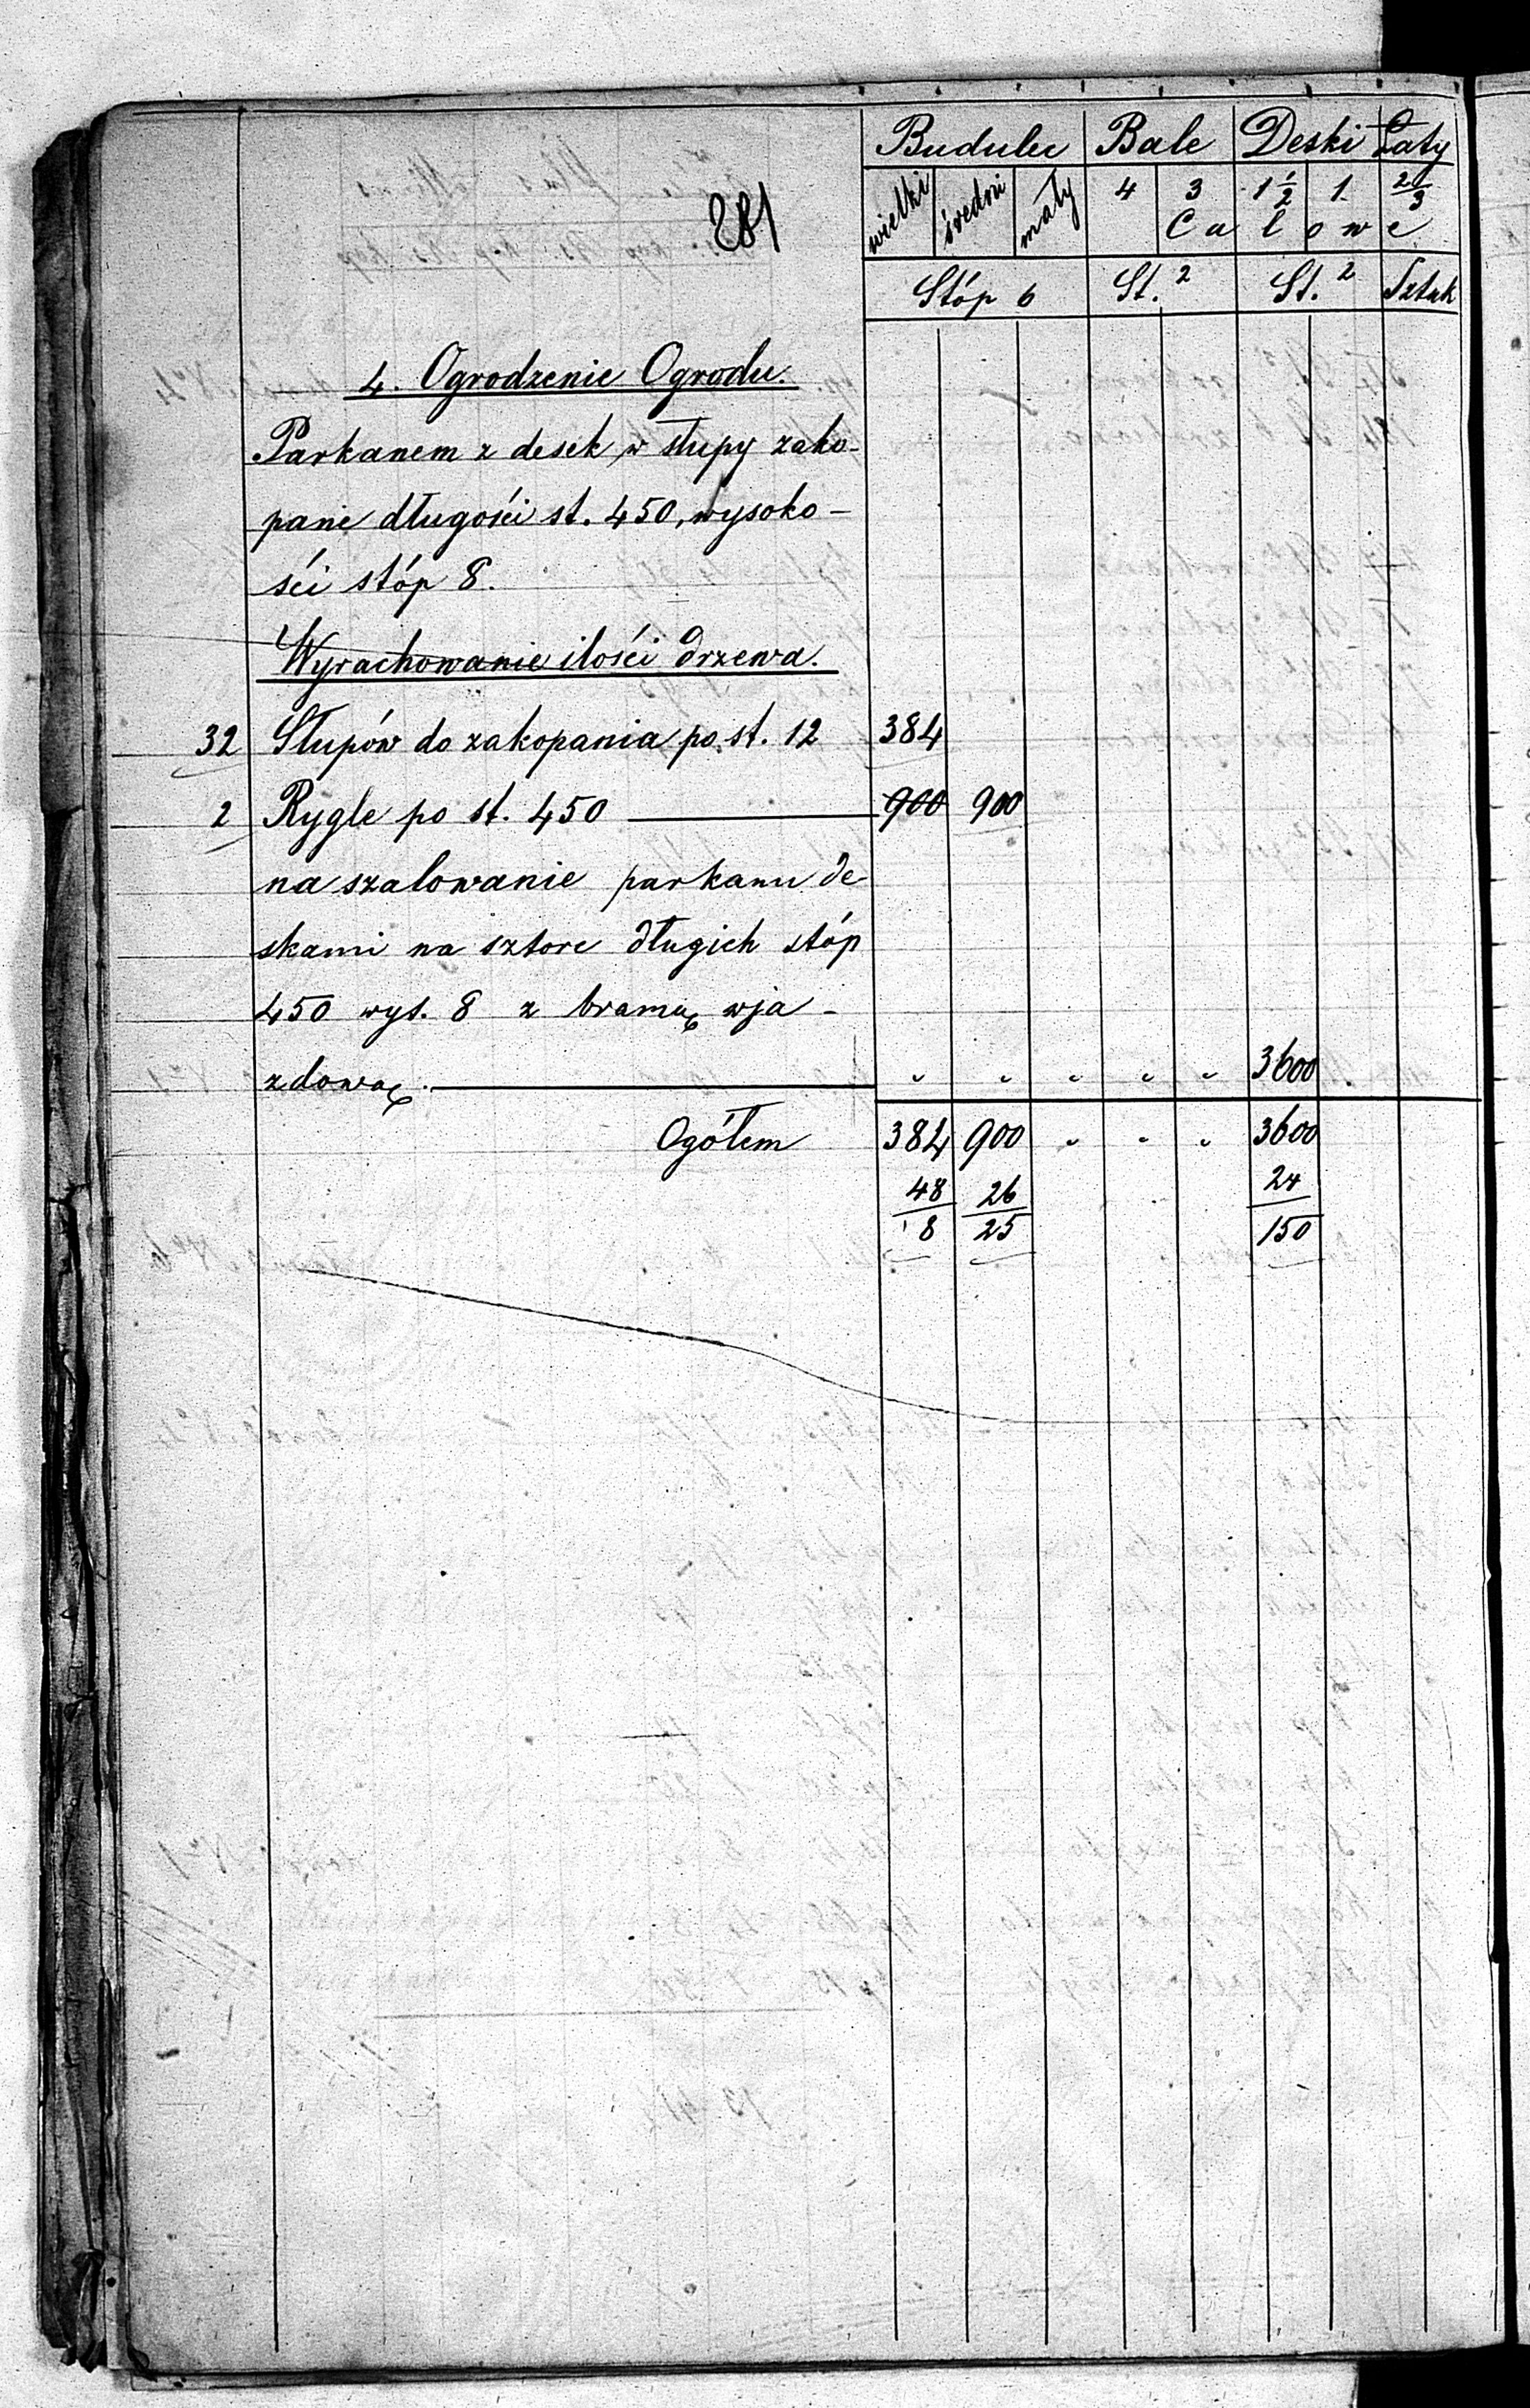 281
Budulec Bale Deski Łaty
wielki średni mały 4 3 1 1/2 1 2/3
Calowe
Stóp b St.2 St.2 Sztuk
4. Ogrodzenie Ogrodu.
Parkanem z desek w słupy zako-
pane długości st. 450, wysoko-
ści stóp 8.
Wyrachowanie ilości drzewa.
32 Słupów do zakopania po st. 12 384
2 Rygle po st. 450 900 900
na szalowanie parkanu de-
skami na sztorc długich stóp
450 wys. 8 z bramą wja-
zdową. " " " " " 3600
Ogółem 384 900 " " " 3600
48 26 24
8 25 150